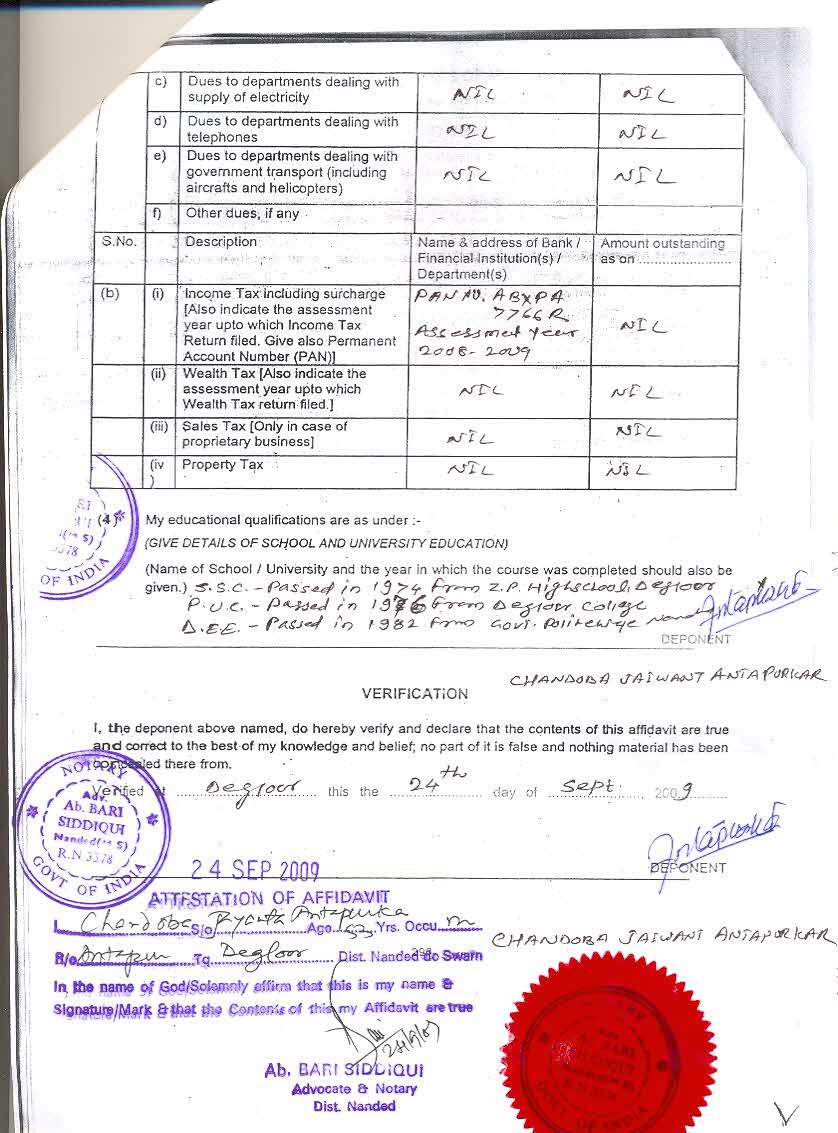 c) Dues to departments dealing with supply of electricity NIL NIL
d) Dues to departments dealing with telephones NIL NIL
e) Dues to departments dealing with government transport (including aircrafts and helicopters) NIL NIL
f) Other dues, if any
S.No. Description Name & address of Bank / Financial Institution(s) / Department(s) Amount outstanding as on ........................
(b) (i) Income Tax including surcharge [Also indicate the assessment year upto which Income Tax Return filed. Give also Permanent Account Number (PAN)] PAN NO. ABXPA 7766R Assessmet year 2008-2009 NIL
(ii) Wealth Tax [Also indicate the assessment year upto which Wealth Tax return filed.] NIL NIL
(iii) Sales Tax [Only in case of proprietary business] NIL NIL
(iv) Property Tax NIL NIL
(4) My educational qualifications are as under :-
(GIVE DETAILS OF SCHOOL AND UNIVERSITY EDUCATION)
(Name of School / University and the year in which the course was completed should also be
given.) S.S.C. - Passed in 1974 from Z.P. Highschool, Degloor
P.U.C. - Passed in 1976 from Degloor College
D.E.E. - Passed in 1982 from Govt.
DEPONENT
CHANDOBA JAIWANT ANTAPURKAR
VERIFICATION
I, the deponent above named, do hereby verify and declare that the contents of this affidavit are true
and correct to the best of my knowledge and belief; no part of it is false and nothing material has been
concealed there from.
Verified at Degloor this the 24th day of Sept. 2009
NOTARY
Adv.
Ab. BARI
SIDDIQUI
Nanded(M S)
R.N 3378
GOVT OF INDIA
DEPONENT
24 SEP 2009
ATTESTATION OF AFFIDAVIT
I, Chandoba S/o Antapurka Age 53 Yrs. Occu.
R/o Antapur Tq Degloor Dist. Nanded do Swarn
CHANDOBA JAIWANT ANTAPURKAR
In the name of God/Solamnly affirm that this is my name &
Signature/Mark & that the Contents of this my Affidavit are true
24/9/09
Ab. BARI SIDDIQUI
Advocate & Notary
Dist. Nanded